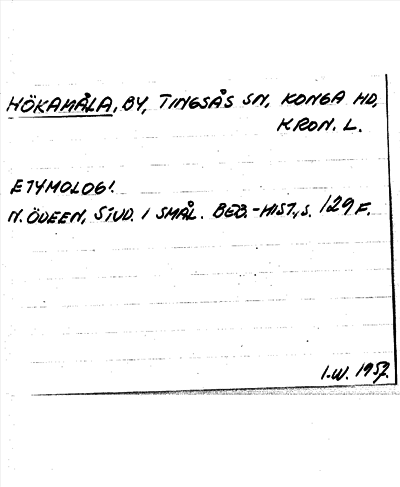 HÖKAMÅLA, BY, TINGSÅS SN, KONGA HD,
KRON. L.
ETYMOLOGI.
N. ÖDEEN, STUD. I SMÅL. BEB.-HIST., S. 129 F.
I.W. 1957.